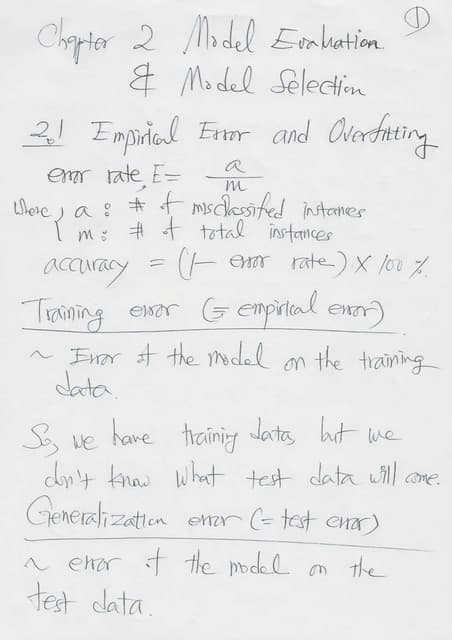 ①
Chapter 2 Model Evaluation
& Model Selection
2.1 Empirical Error and Overfitting
error rate, E = a/m
where, a : # of misclassified instances
m : # of total instances
accuracy = (1 - error rate) × 100 %
Training error (= empirical error)
~ Error of the model on the training
data.
So, we have training data, but we
don't know what test data will come.
Generalization error (= test error)
~ error of the model on the
test data.